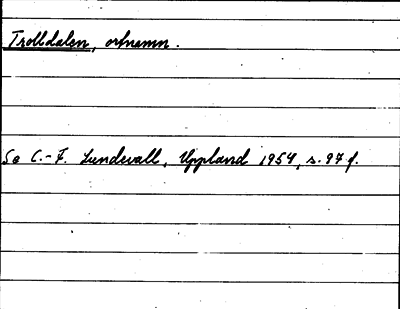 Trolldalen, ortnamn.
Se C.-F. Lundevall, Uppland 1954, s. 97 f.